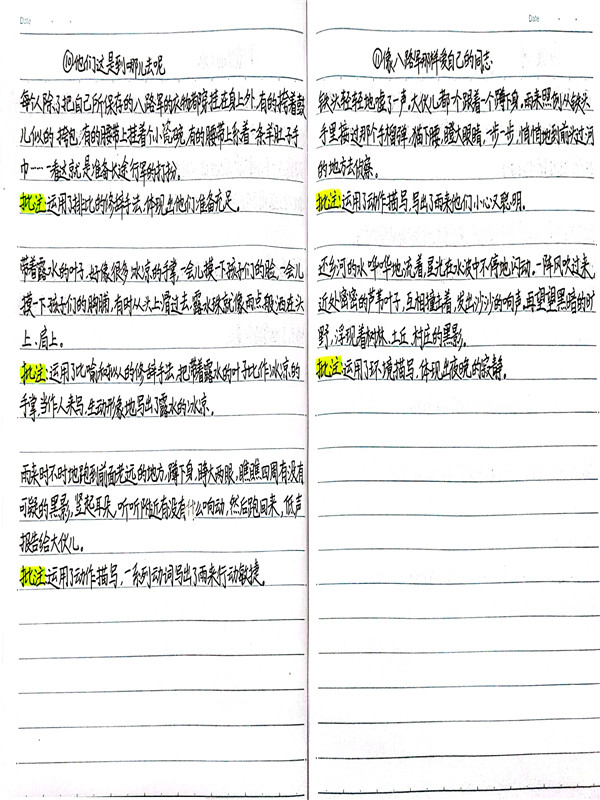 Date
⑩他们这是到哪儿去呢
每个人除了把自己所保存的八路军的衣物都穿挂在身上外,有的挎着鼓
儿似的挎包,有的腰带上挂着个小瓷碗,有的腰带上系着一条羊肚子手
巾……一看这就是准备长途行军的打扮。
批注:运用了排比的修辞手法,体现出他们准备充足。
带着露水的叶子,好像很多冰凉的手掌,一会儿摸一下孩子们的脸,一会儿
摸一下孩子们的胸脯,有时从头上滑过去,露水珠就像雨点般洒在头
上、肩上。
批注:运用了比喻和拟人的修辞手法,把带着露水的叶子比作冰凉的
手掌,当作人来写,生动形象地写出了露水的冰凉。
雨来时不时地跑到前面老远的地方,蹲下身,睁大两眼,瞧瞧四周有没有
可疑的黑影,竖起耳朵,听听附近有没有什么响动,然后跑回来,低声
报告给大伙儿。
批注:运用了动作描写,一系列动词写出了雨来行动敏捷。
Date
⑪像八路军那样爱自己的同志
铁头轻轻地嘘了一声。大伙儿都一个跟着一个蹲下身,雨来照例从铁头
手里接过那个手榴弹,猫下腰,瞪大眼睛,一步一步,悄悄地到前次过河
的地方去侦察。
批注:运用了动作描写,写出了雨来他们小心又聪明。
还乡河的水哗哗地流着,星光在水波中不停地闪动。一阵风吹过来,
近处密密的芦苇叶子,互相撞击着,发出沙沙的响声,再望望黑暗的旷
野,浮现着树林、土丘、村庄的黑影。
批注:运用了环境描写,体现出夜晚的寂静。